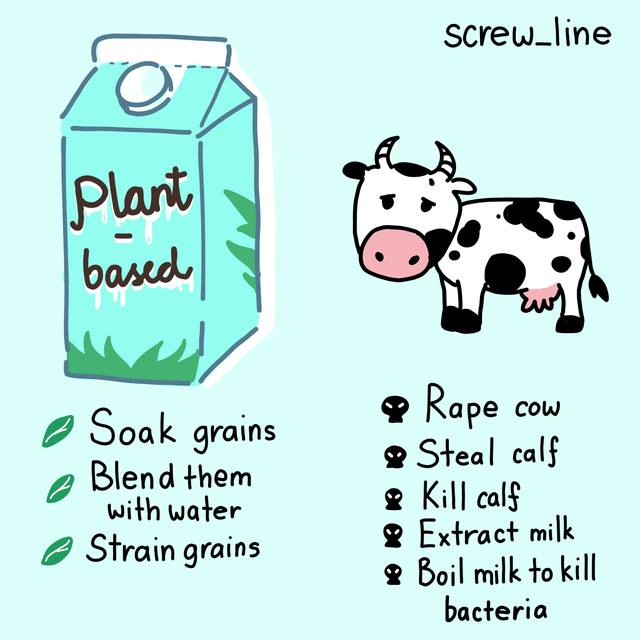 screw_line
Plant
-
based
Soak grains
Blend them
with water
Strain grains
Rape cow
Steal calf
Kill calf
Extract milk
Boil milk to kill
bacteria